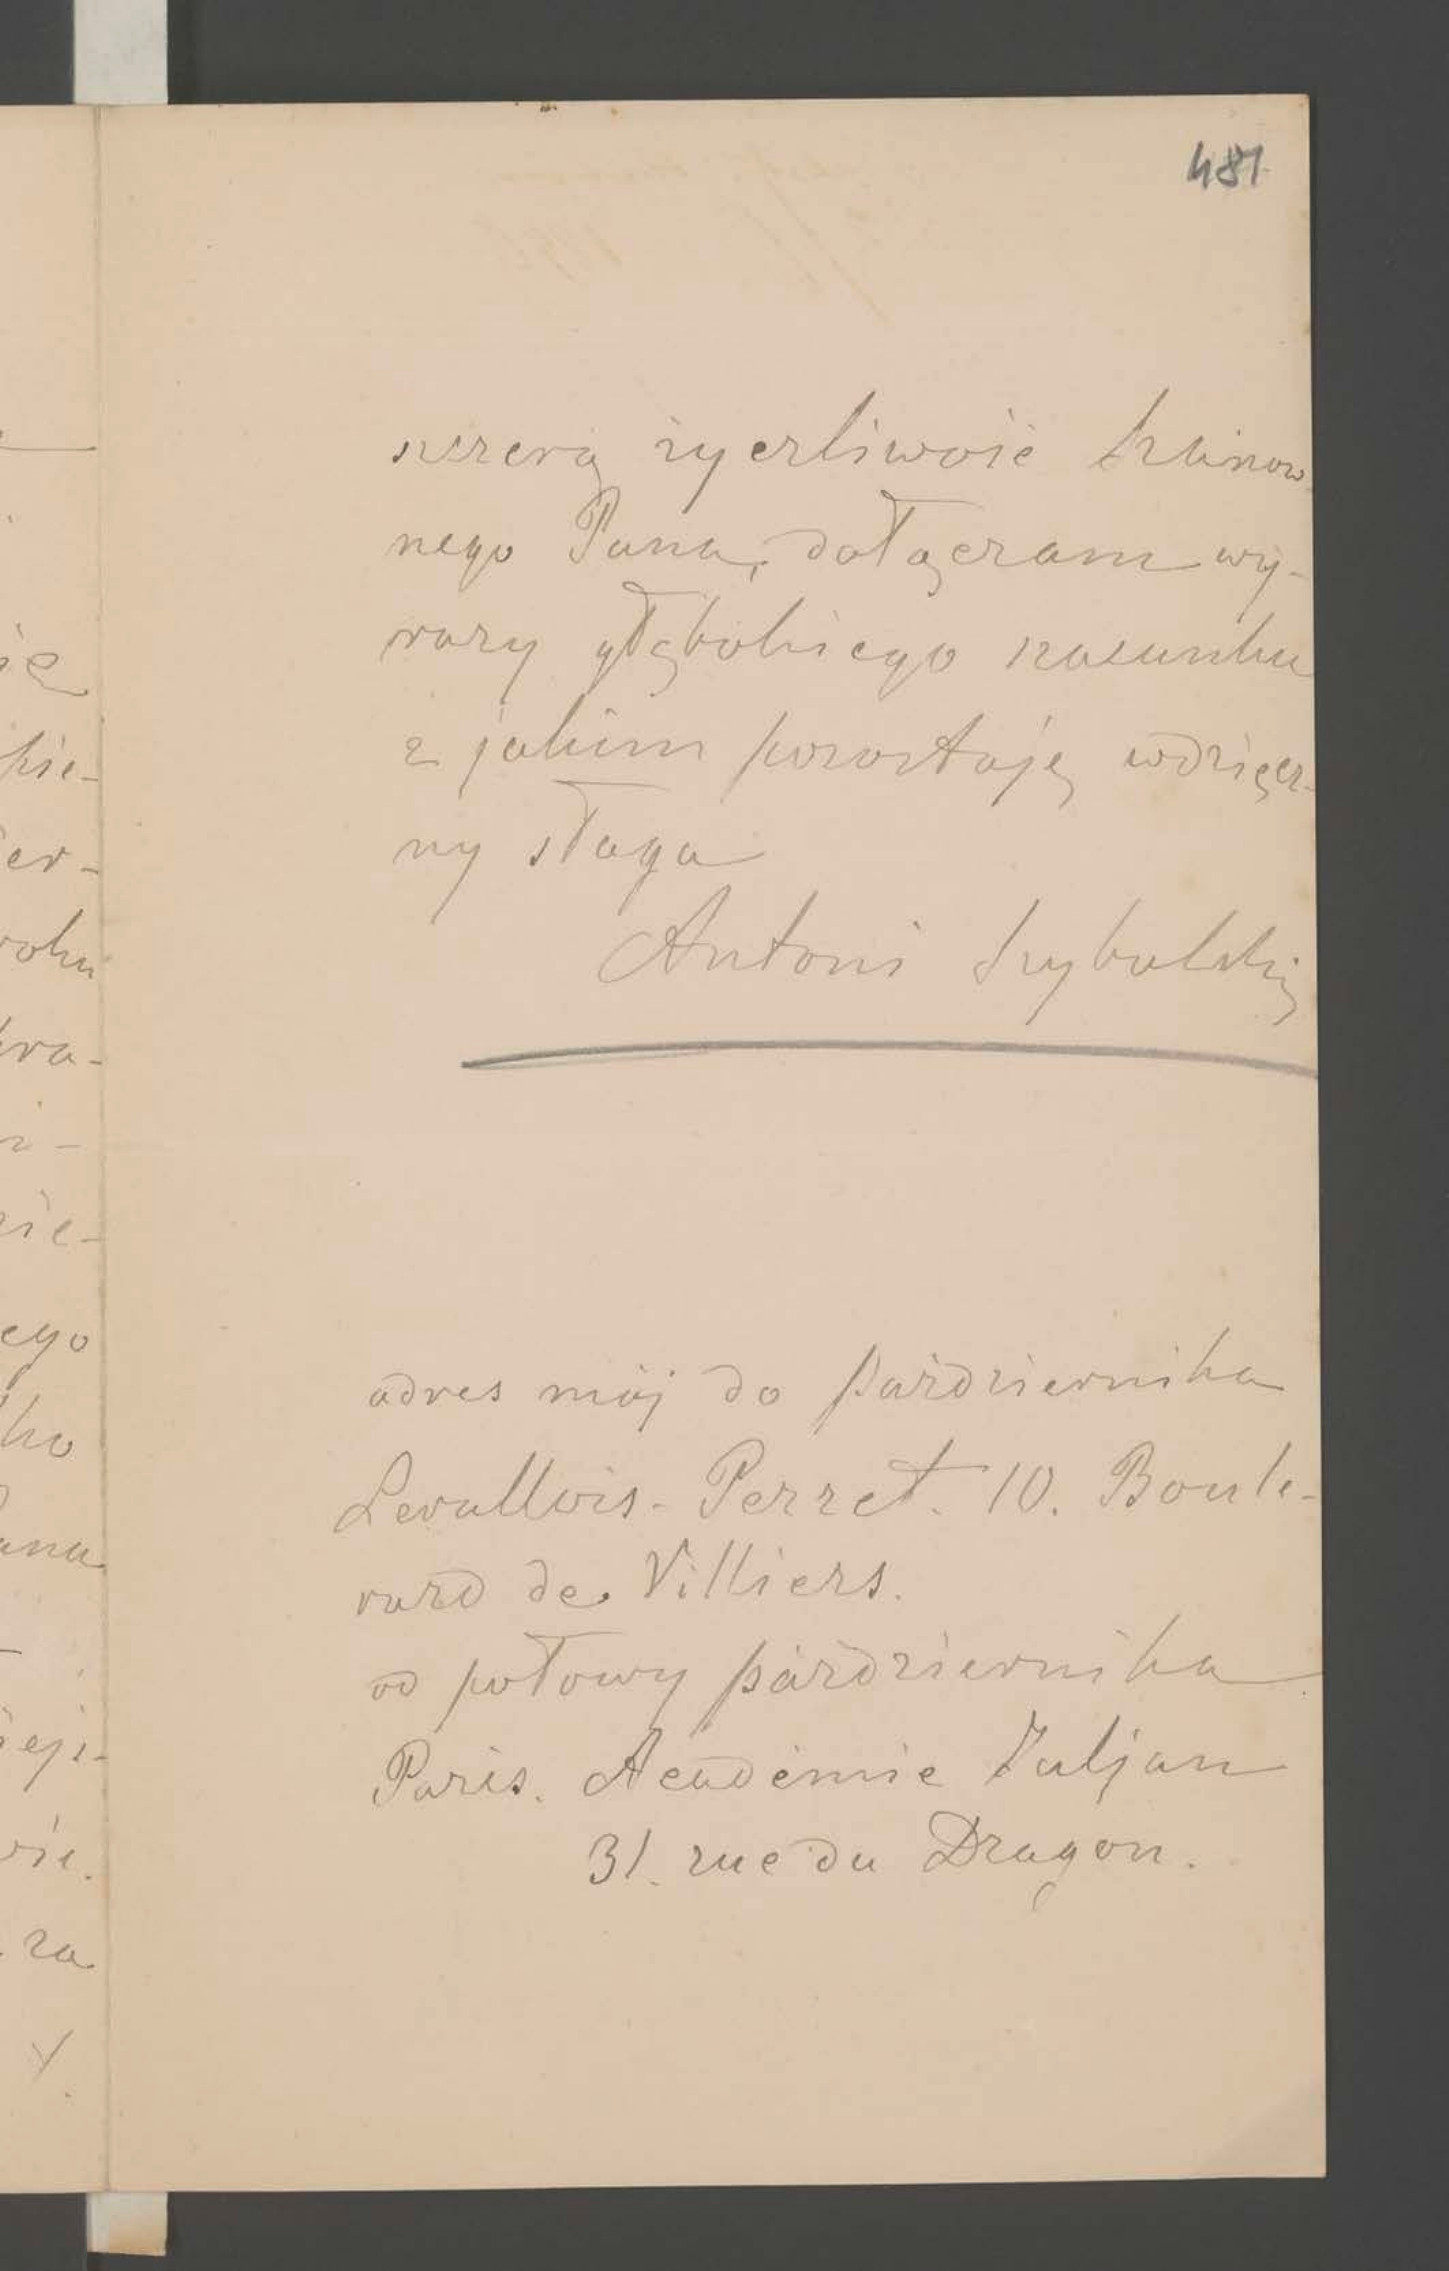 481
szczerą życzliwość Szanow-
nego Pana, dołączam wy-
razy głębokiego szacunku
z jakim pozostaję wdzięcz-
ny sługa
Antoni
adres mój do października
Levallois-Perret. 10. Boule-
vard de Villiers.
od połowy października
Paris. Académie Juljan
31. rue du Dragon.